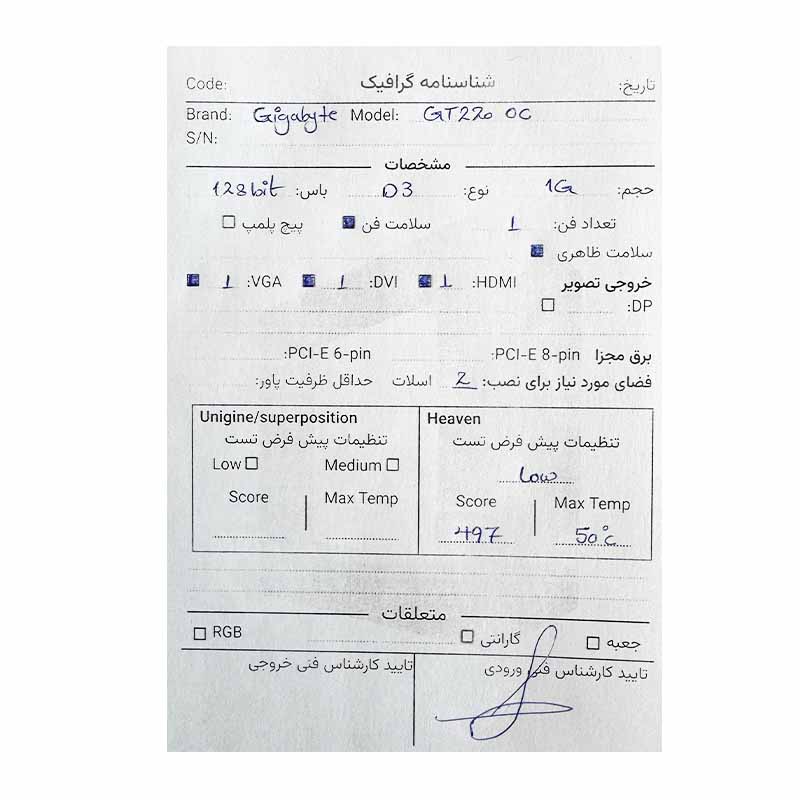 تاریخ: شناسنامه گرافیک Code:
Brand: Gigabyte Model: GT220 OC
S/N:
مشخصات
حجم: 1G نوع: D3 باس: 128bit
تعداد فن: 1 سلامت فن پیچ پلمپ
سلامت ظاهری
خروجی تصویر HDMI: 1 DVI: 1 VGA: 1
DP:
برق مجزا PCI-E 8-pin: PCI-E 6-pin:
فضای مورد نیاز برای نصب: 2 اسلات حداقل ظرفیت پاور:
Unigine/superposition Heaven
تنظیمات پیش فرض تست تنظیمات پیش فرض تست
Low Medium Low
Score Max Temp Score Max Temp
497 50°C
متعلقات
جعبه گارانتی RGB
تایید کارشناس فنی ورودی تایید کارشناس فنی خروجی